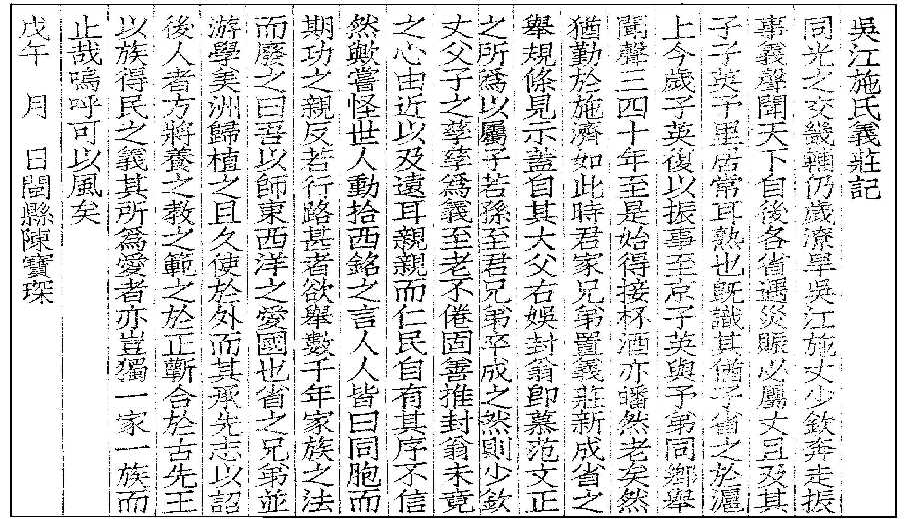 吳江施氏義莊記
同光之交畿輔仍歲潦旱吳江施丈少欽奔走振
事義聲聞天下自後各省遇災賑必屬丈且及其
子子英予里居常耳熟也旣識其猶子省之於滬
上今歲子英復以振事至京子英與予弟同鄉舉
聞聲三四十年至是始得接杯酒亦皤然老矣然
猶勤於施濟如此時君家兄弟置義莊新成省之
舉規條見示蓋自其大父右娛封翁卽慕范文正
之所爲以屬子若孫至君兄弟卒成之然則少欽
丈父子之孳孳爲義至老不倦固善推封翁未竟
之心由近以及遠耳親親而仁民自有其序不信
然歟嘗怪世人動拾西銘之言人人皆曰同胞而
期功之親反若行路甚者欲舉數千年家族之法
而廢之曰吾以師東西洋之愛國也省之兄弟並
游學美洲歸植之且久使於外而其承先志以詔
後人者方將養之教之範之於正蘄合於古先王
以族得民之義其所爲愛者亦豈獨一家一族而
止哉嗚呼可以風矣
戊午　月　日閩縣陳寶琛